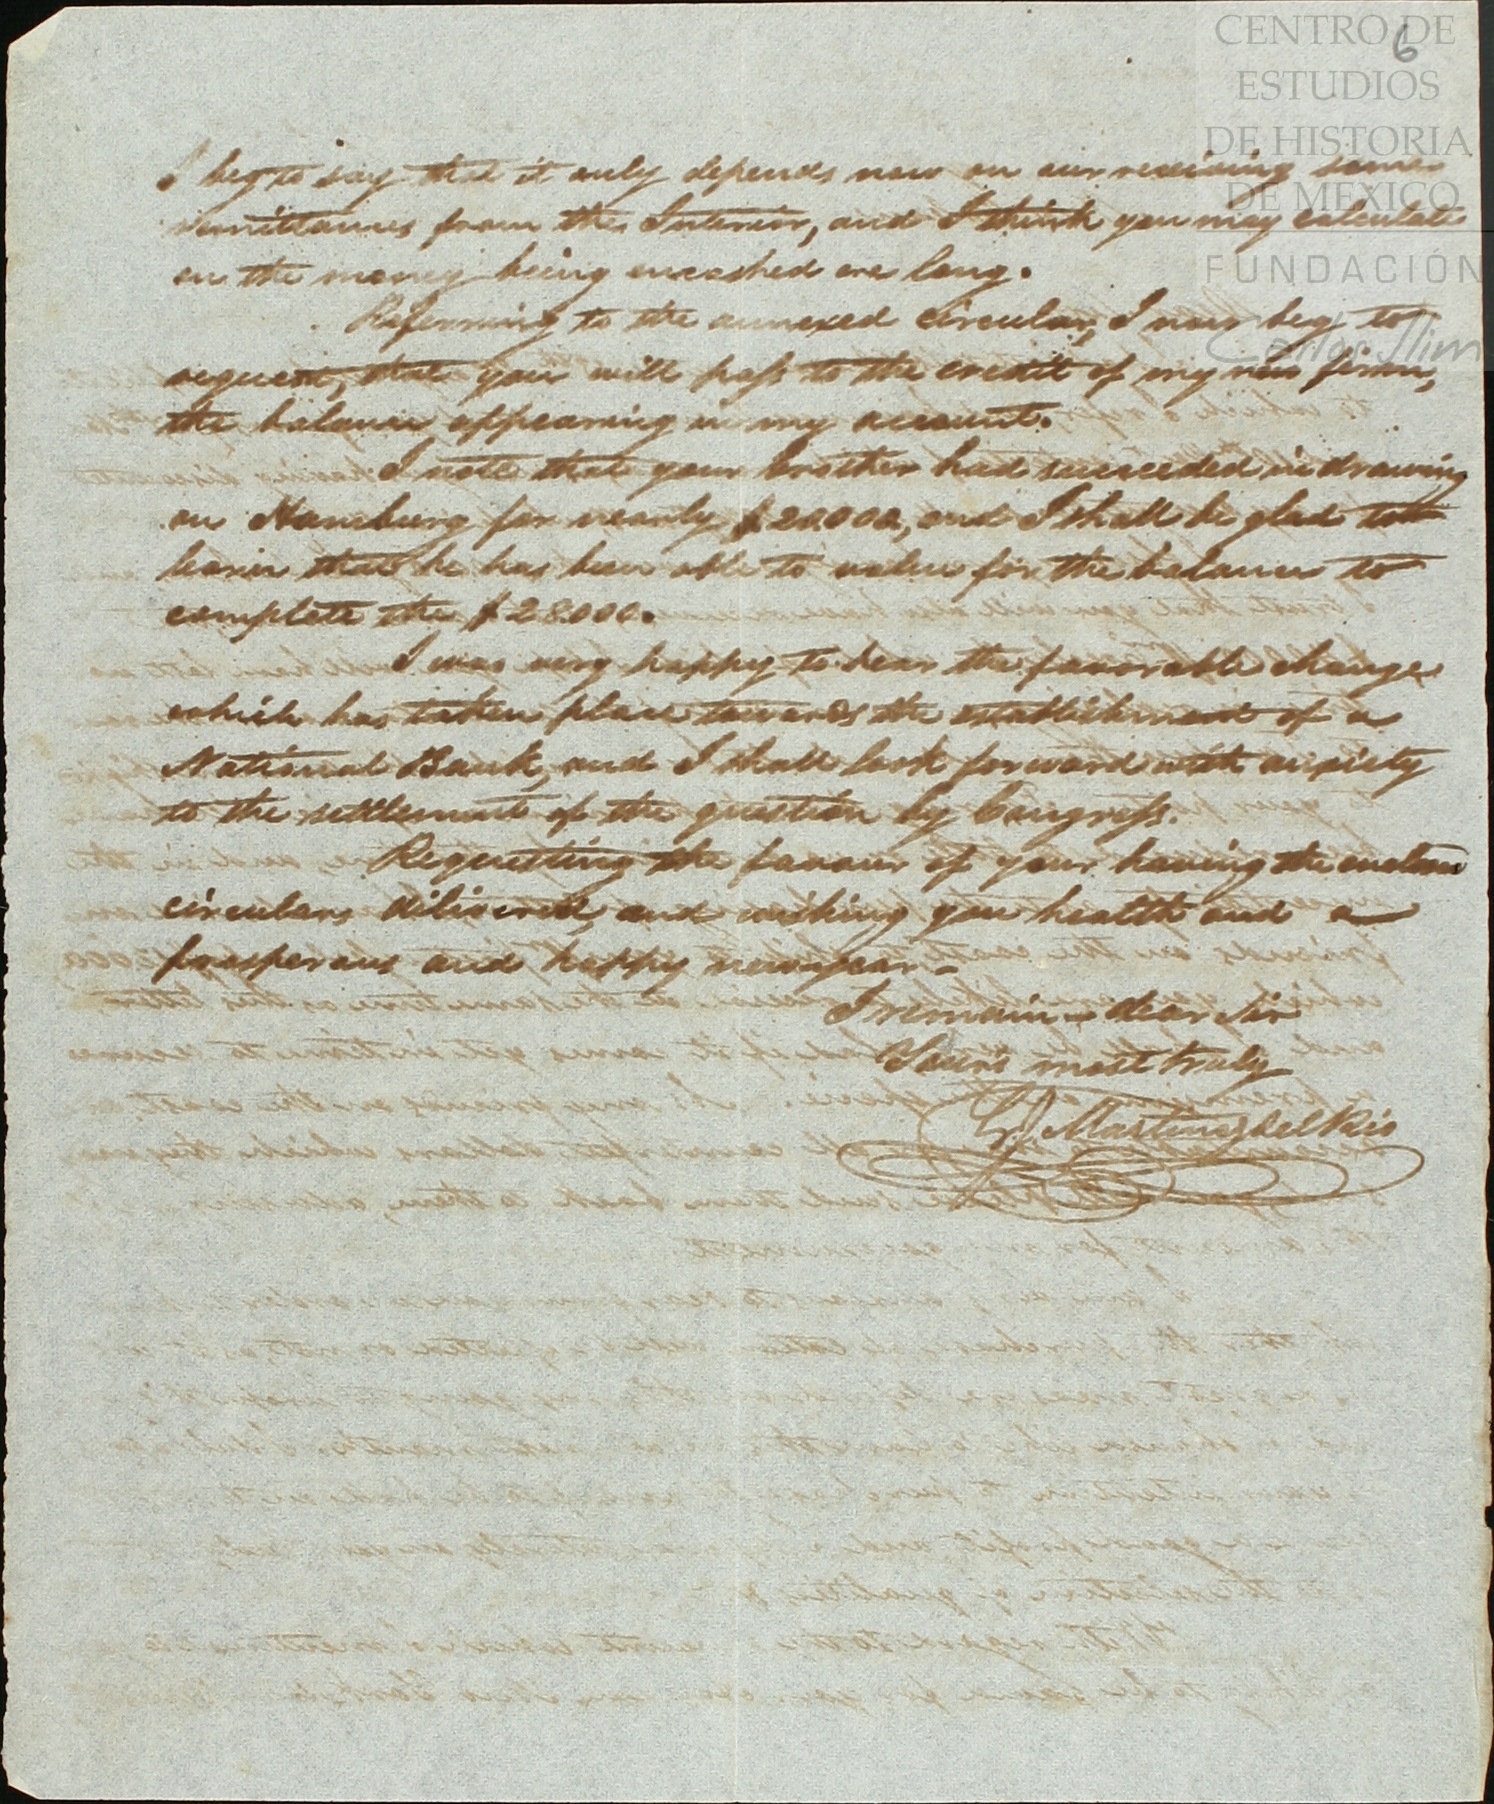 CENTRO DE
ESTUDIOS
DE HISTORIA
DE MEXICO
FUNDACIÓN
Carlos Slim
6
I beg to say that it only depends now on our receiving some
remittances from the Interior, and I think you may calculate
on the money being encashed ere long.
Referring to the annexed circular, I now beg to
request, that you will pass to the credit of my new firm,
the balance appearing in my account.
I note that your brother had succeeded in drawing
on Hamburg for nearly $20.000, and I shall be glad to
learn that he has been able to value for the balance to
complete the $28.000.
I was very happy to hear the favorable change
which has taken place towards the establishment of a
National Bank, and I shall look forward with anxiety
to the settlement of the question by Congress.
Requesting the favour of your having the
circulars delivered, and wishing you health and a
prosperous and happy new year.
I remain dear Sir
Yours most truly
Martinez del Rio